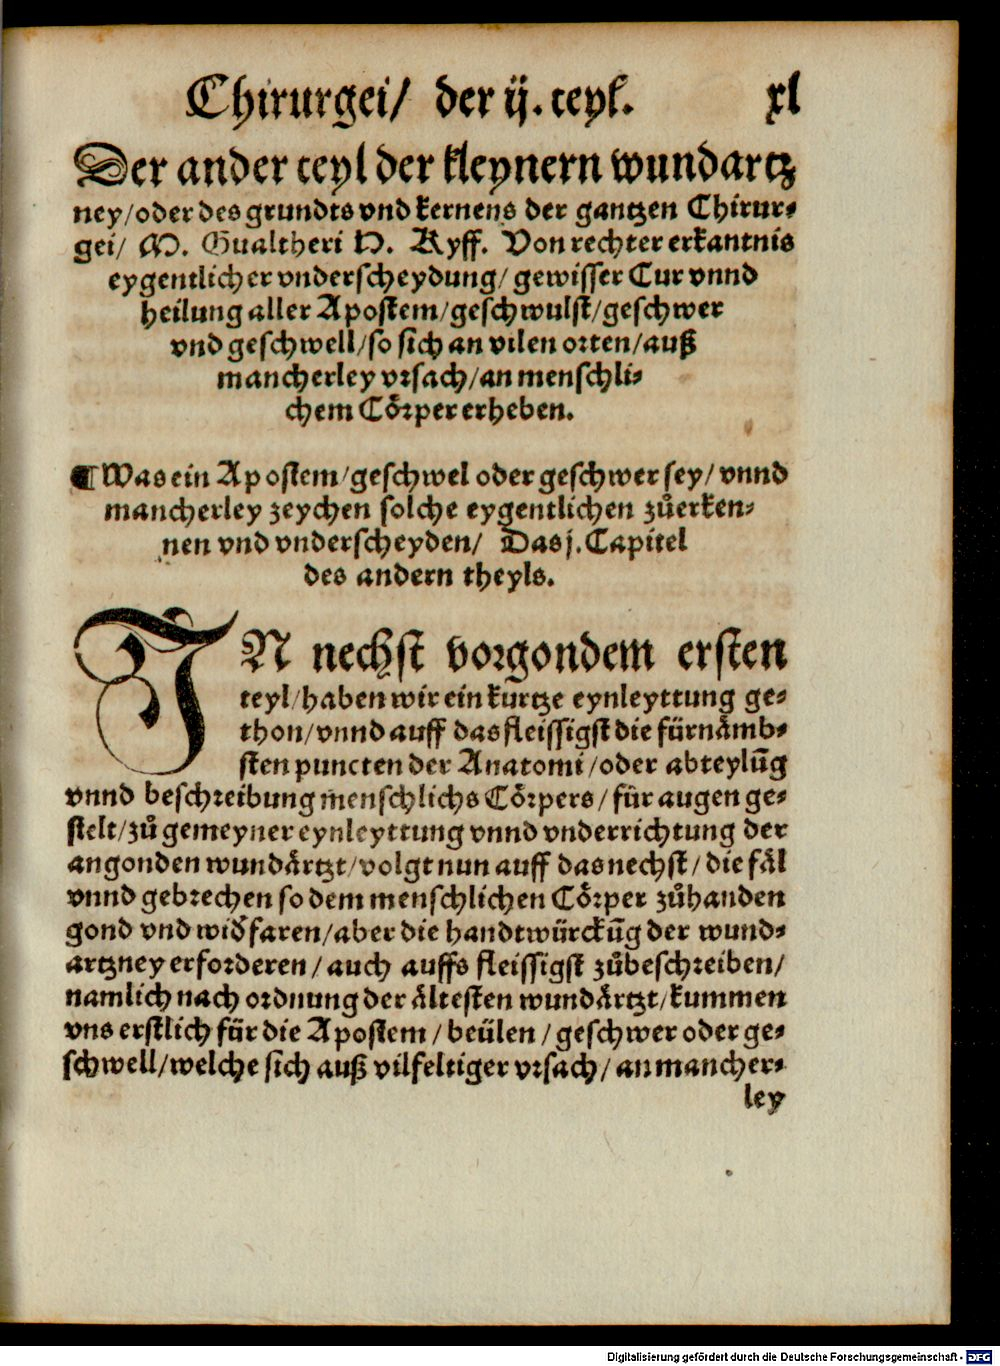 Chirurgei/ der ij. teyl. xl
Der ander teyl der kleynern wundartz
ney/oder des grundts vnd kernens der gantzen Chirur⸗
gei/ M. Gualtheri H. Ryff. Von rechter erkantnis
eygentlicher vnderscheydung/ gewisser Cur vnnd
heilung aller Apostem/geschwulst/geschwer
vnd geschwell/so sich an vilen orten/auß
mancherley vrsach/an menschli⸗
chem Cörper erheben.
¶ Was ein Apostem/geschwel oder geschwer sey/ vnnd
mancherley zeychen solche eygentlichen zůerken⸗
nen vnd vnderscheyden/ Das j. Capitel
des andern theyls.
IN nechst vorgondem ersten
teyl/haben wir ein kurtze eynleyttung ge⸗
thon/vnnd auff das fleissigst die fürnämb⸗
sten puncten der Anatomi/oder abteylūg
vnnd beschreibung menschlichs Cörpers/für augen ge⸗
stelt/zů gemeyner eynleyttung vnnd vnderrichtung der
angonden wundärtzt/volgt nun auff das nechst/die fäl
vnnd gebrechen so dem menschlichen Cörper zůhanden
gond vnd wid̕faren/aber die handtwürckūg der wund⸗
artzney erforderen/auch auffs fleissigst zůbeschreiben/
namlich nach ordnung der ältesten wundärtzt/kummen
vns erstlich für die Apostem/beülen/geschwer oder ge⸗
schwell/welche sich auß vilfeltiger vrsach/an mancher⸗
ley
Digitalisierung gefördert durch die Deutsche Forschungsgemeinschaft - DFG